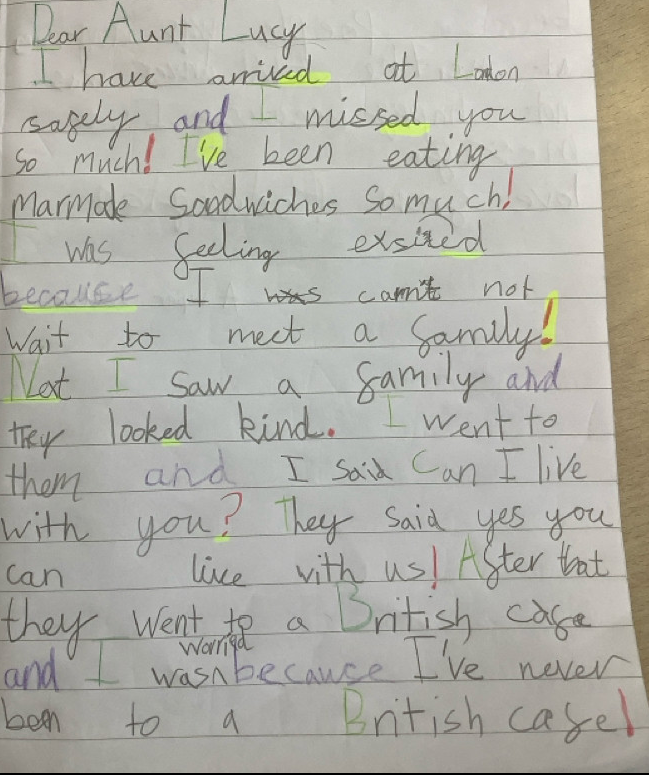 Dear Aunt Lucy
I have arrived at London
safely and I missed you
so much! I've been eating
Marmade Sandwiches so much!
I was feeling exsited
because I was cant not
Wait to meet a family!
Next I saw a family and
they looked kind. I went to
them and I said Can I live
with you? They said yes you
can live with us! After that
they went to a British cafe
and I was worried because I've never
been to a British cafe!